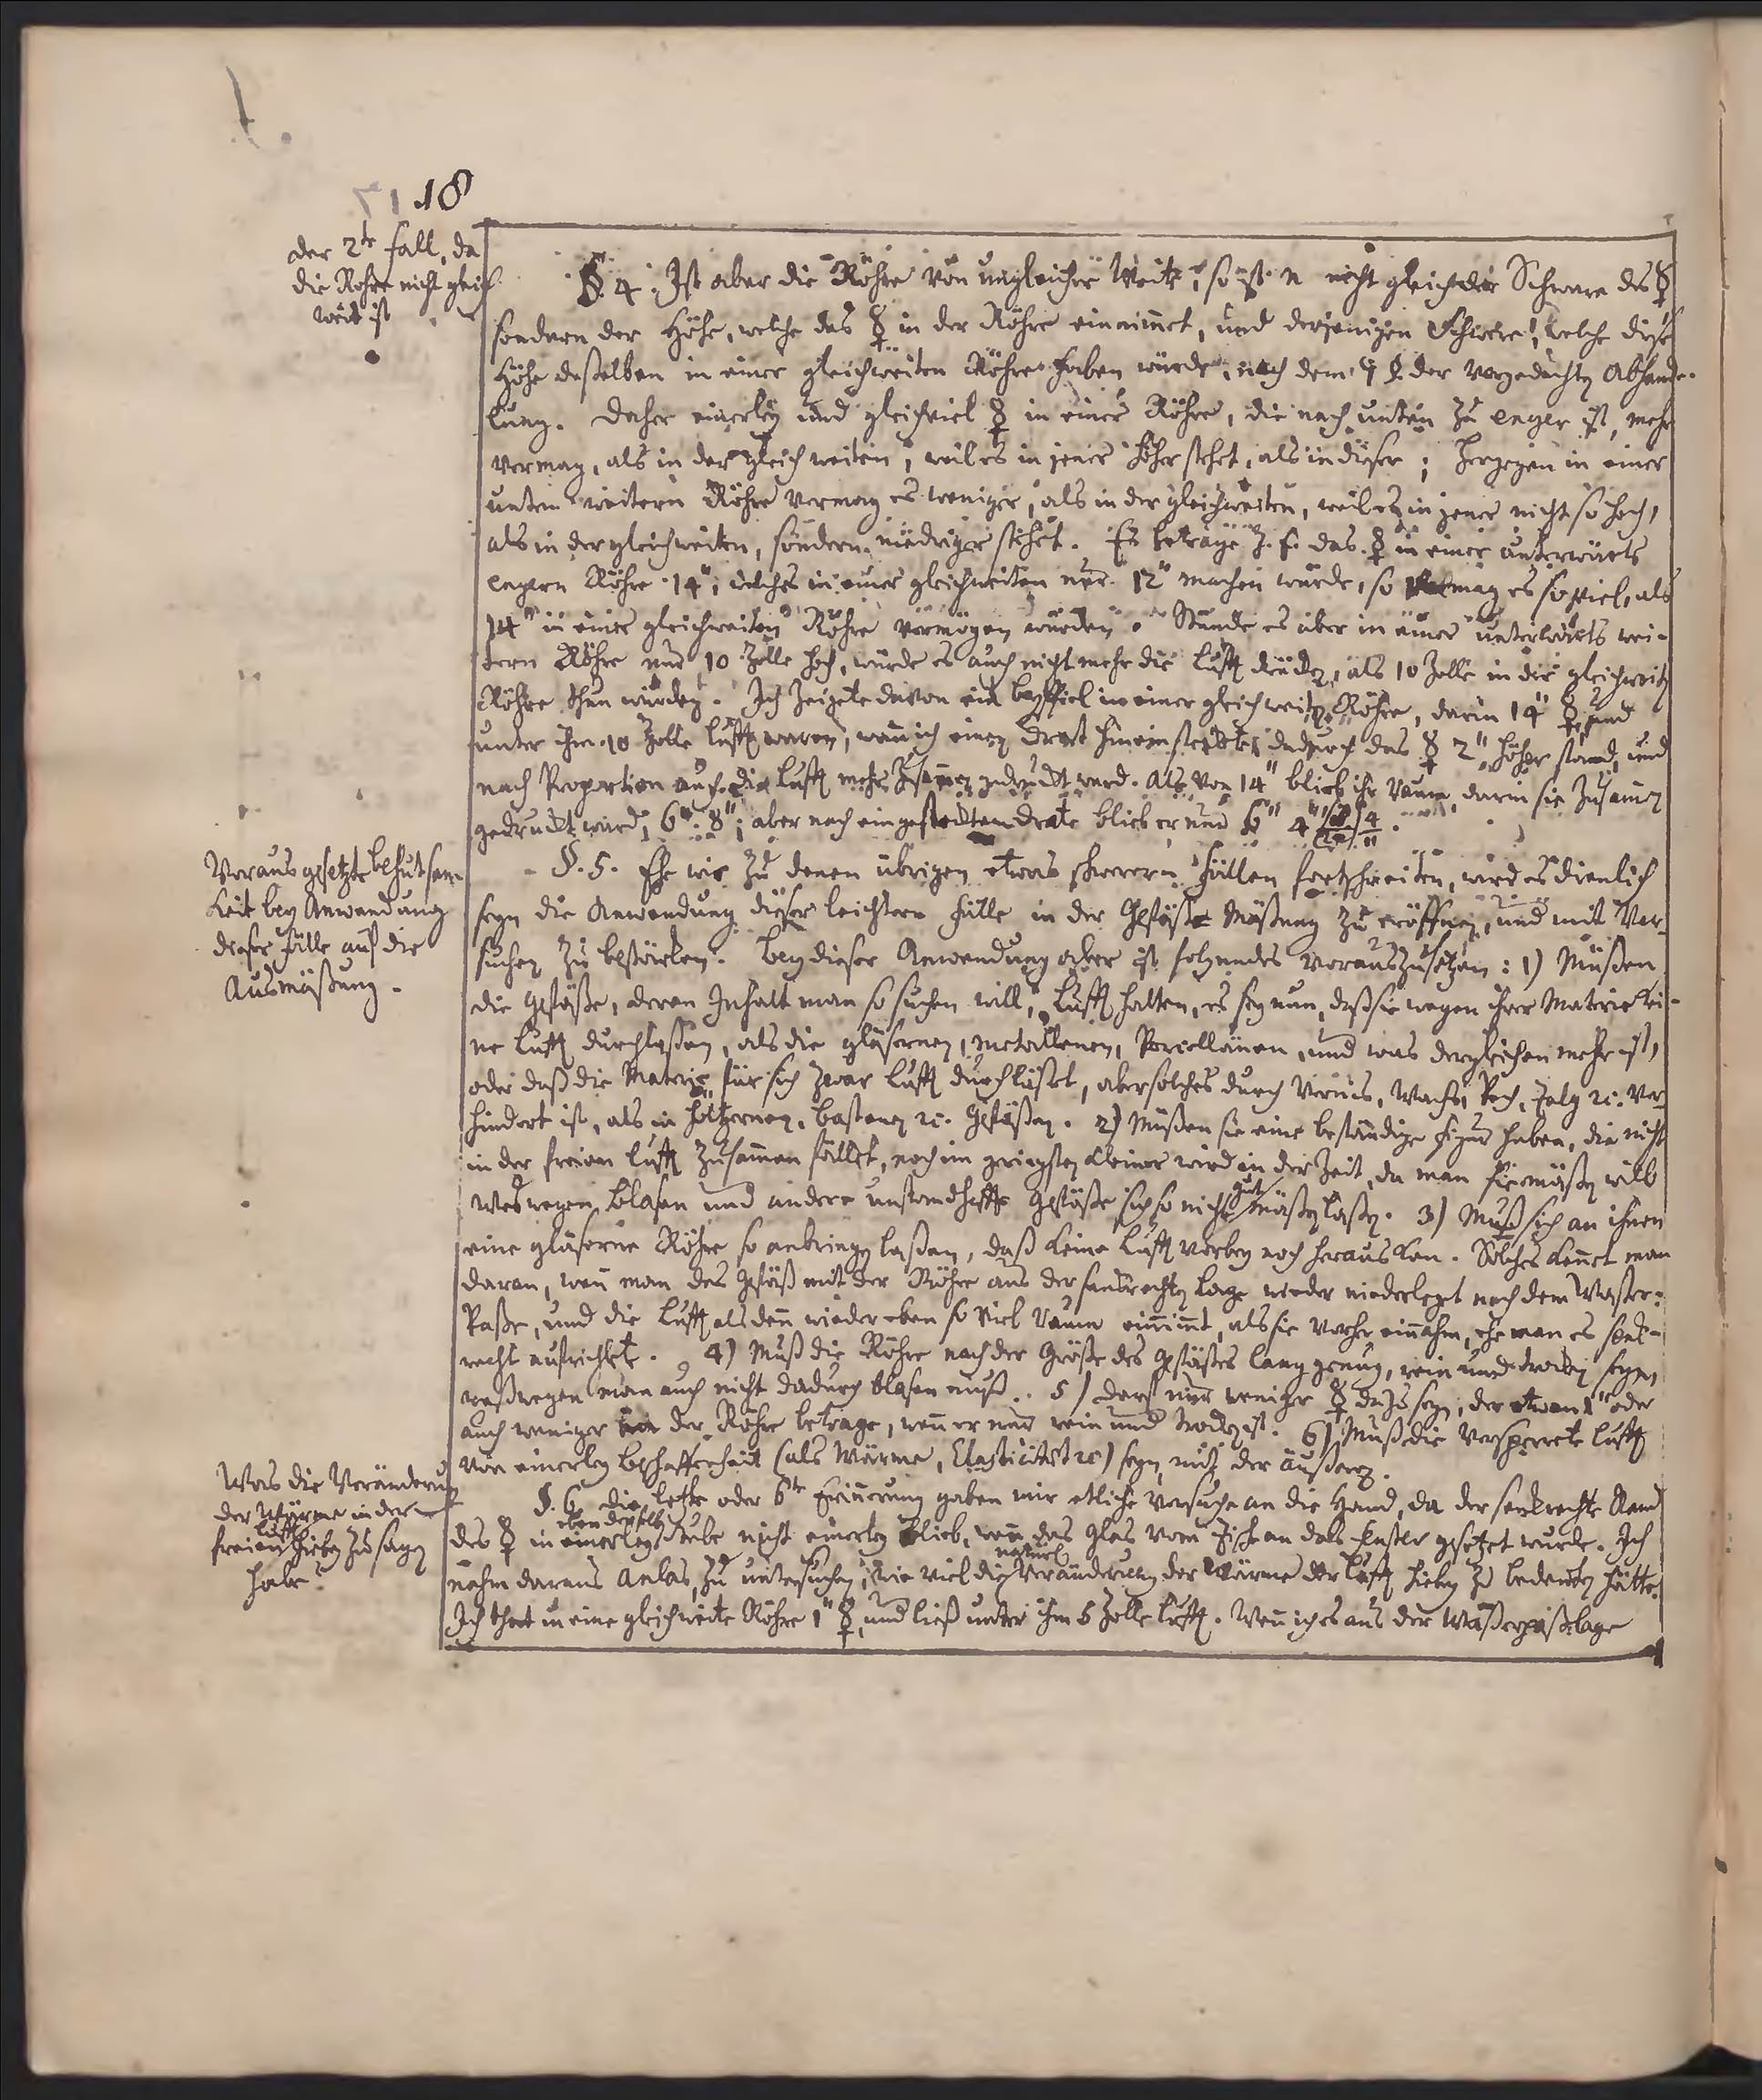 18
der 2te Fall, da
die Röhre nicht gleich
weit ist
§. 4. Ist aber die Röhre von ungleicher Weite, so ist n nicht gleich der Schwere des ☿,
sondern der Höhe, welche das ☿ in der Röhre einnimmet, und derjenigen Schwere, welche diese
Höhe desselben in einer gleichweiten Röhre haben würde, nach dem 9 §. der vorgedachten Abhand-
lung. Daher einerley und gleichviel ☿ in einer Röhre, die nach unten zu enger ist, mehr
vermag, als in der gleich weiten, weil es in jener höher stehet, als in dieser; hergegen in einer
unten weitern Röhre vermag es weniger, als in der gleichweiten, weil es in jener nicht so hoch,
als in der gleichweiten, sondern niedriger stehet. Es betrage z. E. das ☿ in einer unterwärts
engern Röhre 14", welches in einer gleichweiten nur 12" machen würde, so vermag es so viel, als
14" in einer gleichweiten Röhre vermögen würden. Stünde es aber in einer unterwärts wei-
tern Röhre nur 10 Zolle hoch, würde es auch nicht mehr die Lufft drücken, als 10 Zolle in die gleichweite
Röhre thun würden. Ich zeigete davon ein Beyspiel in einer gleichweiten Röhre, darin 14" ☿ und
unter ihm 10 Zolle Lufft waren, wenn ich einen Drat hineinsteckte, dadurch das ☿ 2" höher stand, und
nach Proportion auch die Lufft mehr zusammen gedruckt ward. Als von 14" blieb ihr Raum, darin sie zusammen
gedruckt ward, 6" 8"'; aber nach eingestecktem Drate blieb er nur 6" 4"'
Voraus gesetzte Behutsam-
keit bey Anwendung
dieser Fälle auf die
Ausmäßung.
§. 5. Ehe wir zu denen übrigen etwas schwerern Fällen fortschreiten, wird es dienlich
seyn die Anwendung dieser leichtern Fälle in der Gefäße Mäßung zu eröffnen, und mit Ver-
suchen zu bestärken. Bey dieser Anwendung aber ist folgendes vorauszusetzen: 1) Müßen
die Gefäße, deren Inhalt man so suchen will, Lufft halten, es sey nun, daß sie wegen ihrer Materie kei-
ne Lufft durchlaßen, als die gläsernen, metallenen, Porcellänen, und was dergleichen mehr ist,
oder daß die Materie für sich zwar Lufft durchläßet, aber solches durch Vernis, Wachs, Pech, Talg ꝛc. ver-
hindert ist, als in höltzernen, bastenen ꝛc. Gefäßen. 2) Müßen sie eine beständige Figur haben, die nicht
in der freien Lufft zusammen fället, noch im geringsten kleiner wird in der Zeit, da man sie mäßen will
weswegen Blasen und andere unstandhaffte Gefäße sich so nicht gut mäßen laßen. 3) Muß sich an ihnen
eine gläserne Röhre so anbringen laßen, daß keine Lufft vorbey noch heraus kan. Solches kennet man
daran, wenn man das Gefäß mit der Röhre aus der senkrechten Lage wieder niederleget nach dem Waßer-
Paße, und die Lufft alsdenn wieder eben so viel Raum einnimt, als sie vorher einnahm, ehe man es senk-
recht aufrichtete. 4) Muß die Röhre nach der Größe des Gefäßes lang genug, rein und drocken seyn,
weßwegen man auch nicht dadurch blasen muß. 5) Darf nur weniger ☿ da zu seyn, der etwan 1" oder
auch weniger in der Röhre betrage, wenn er nur rein und trocken ist. 6) Muß die versperrete Lufft
von einerley Beschaffenheit (als Wärme, Elasticitet ꝛc) seyn, mit der äußeren.
Was die Veränderung
der Wärme in der
freien Lufft hiebey zu sagen
habe?
§. 6. Die letzte oder 6te Erinnerung gaben mir etliche Versuche an die Hand, da der senkrechte Stand
des ☿ in einerley eben derselben Stube nicht einerley blieb, wenn das Glas vom Tische an das Fenster gesetzet wurde. Ich
nahm daraus Anlas, zu untersuchen, wie viel die natürl. Veränderung der Wärme der Lufft hiebey zu bedeuten hätte.
Ich that in eine gleichweite Röhre 1" ☿, und ließ unter ihm 5 Zolle Lufft. Wenn ich es aus der Waßerpaßlage